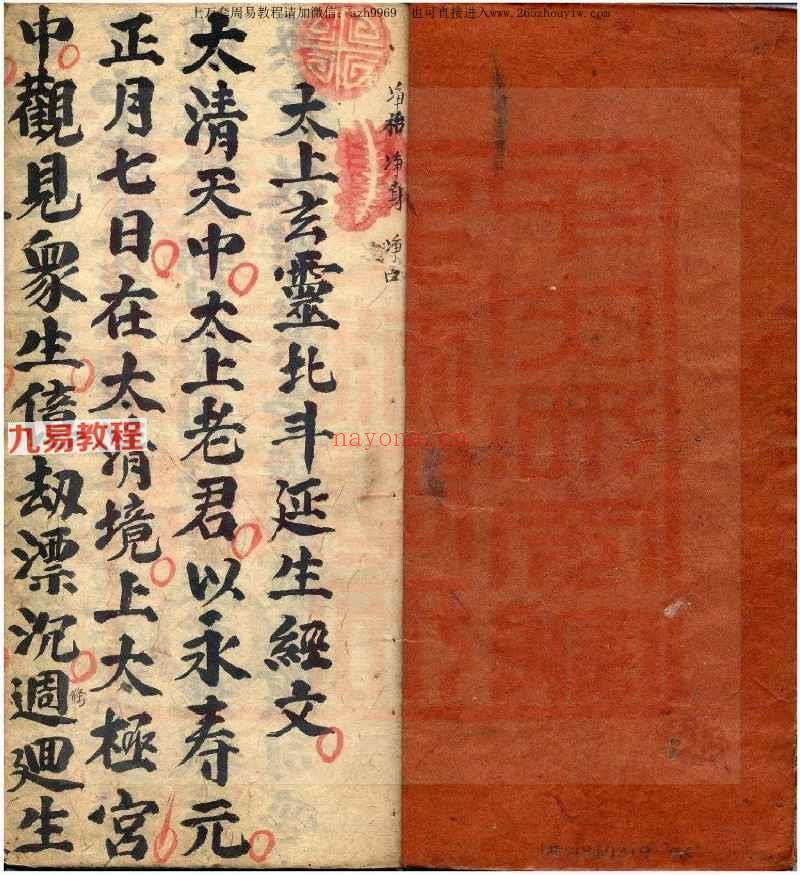 上万套周易教程请加微信:azh9969 也可直接进入www.265zhouyiw.com
净 净身 净口
太上玄靈北斗延生經文
太清天中太上老君以永寿元
正月七日在太清境上太極宮
中觀見眾生億劫漂沉週迴生
九易教程
nayona.cn